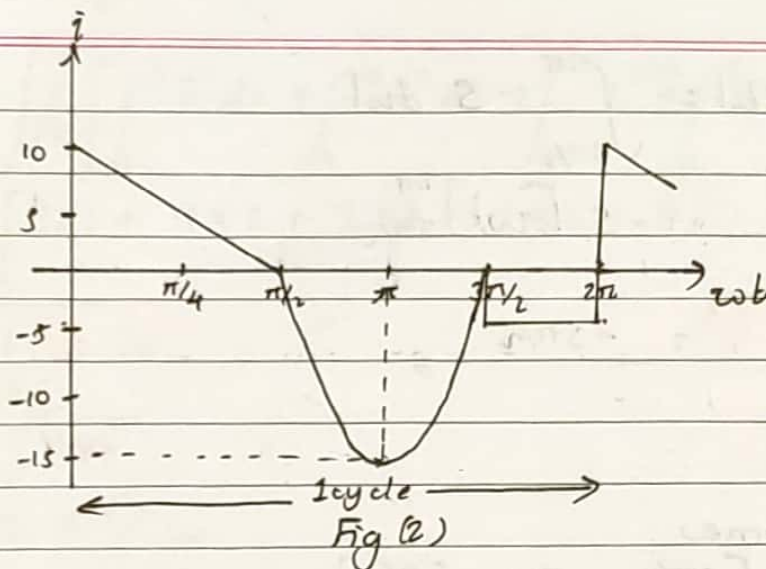 i
10
5
π/4 π/2 π 3π/2 2π wt
-5
-10
-15
1cycle
Fig (2)